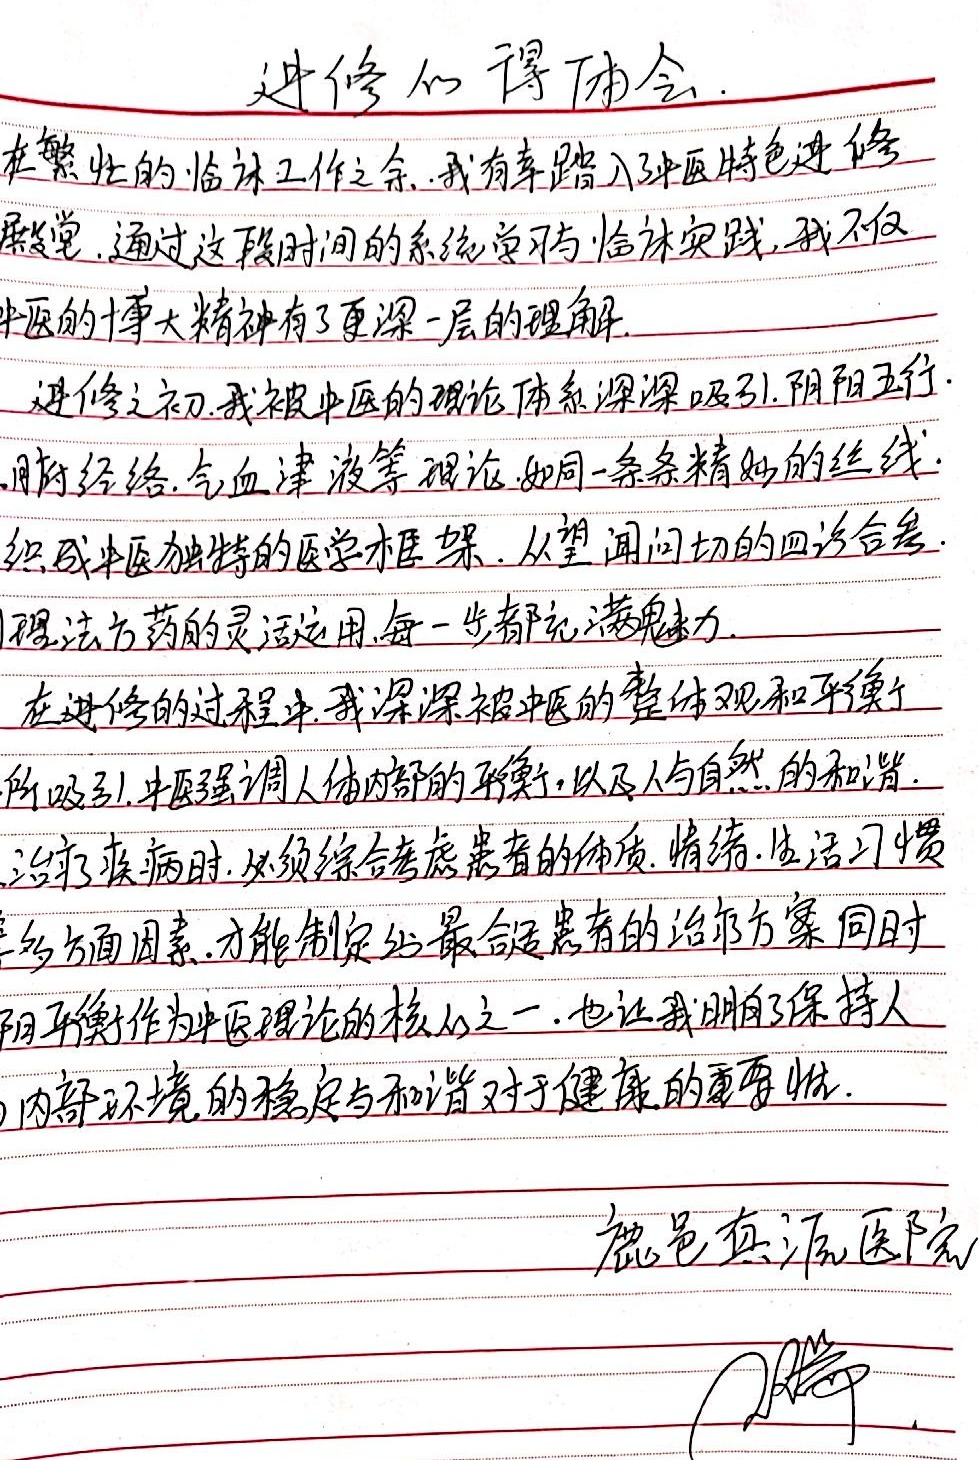 进修心得体会.
在繁忙的临床工作之余.我有幸踏入了中医特色进修
殿堂.通过这段时间的系统学习与临床实践,我不仅
中医的博大精神有了更深一层的理解.
进修之初.我被中医的理论体系深深吸引.阴阳五行.
腑经络.气血津液等理论.如同一条条精妙的丝线.
织成中医独特的医学框架.从望闻问切的四诊合参.
理法方药的灵活运用.每一步都充满魅力.
在进修的过程中.我深深被中医的整体观和平衡
所吸引.中医强调人体内部的平衡,以及人与自然的和谐.
治疗疾病时.必须综合考虑患者的体质.情绪.生活习惯
等多方面因素.才能制定出最合适患者的治疗方案同时
阳平衡作为中医理论的核心之一.也让我明白了保持人
内部环境的稳定与和谐对于健康的重要性.
鹿邑真源医院